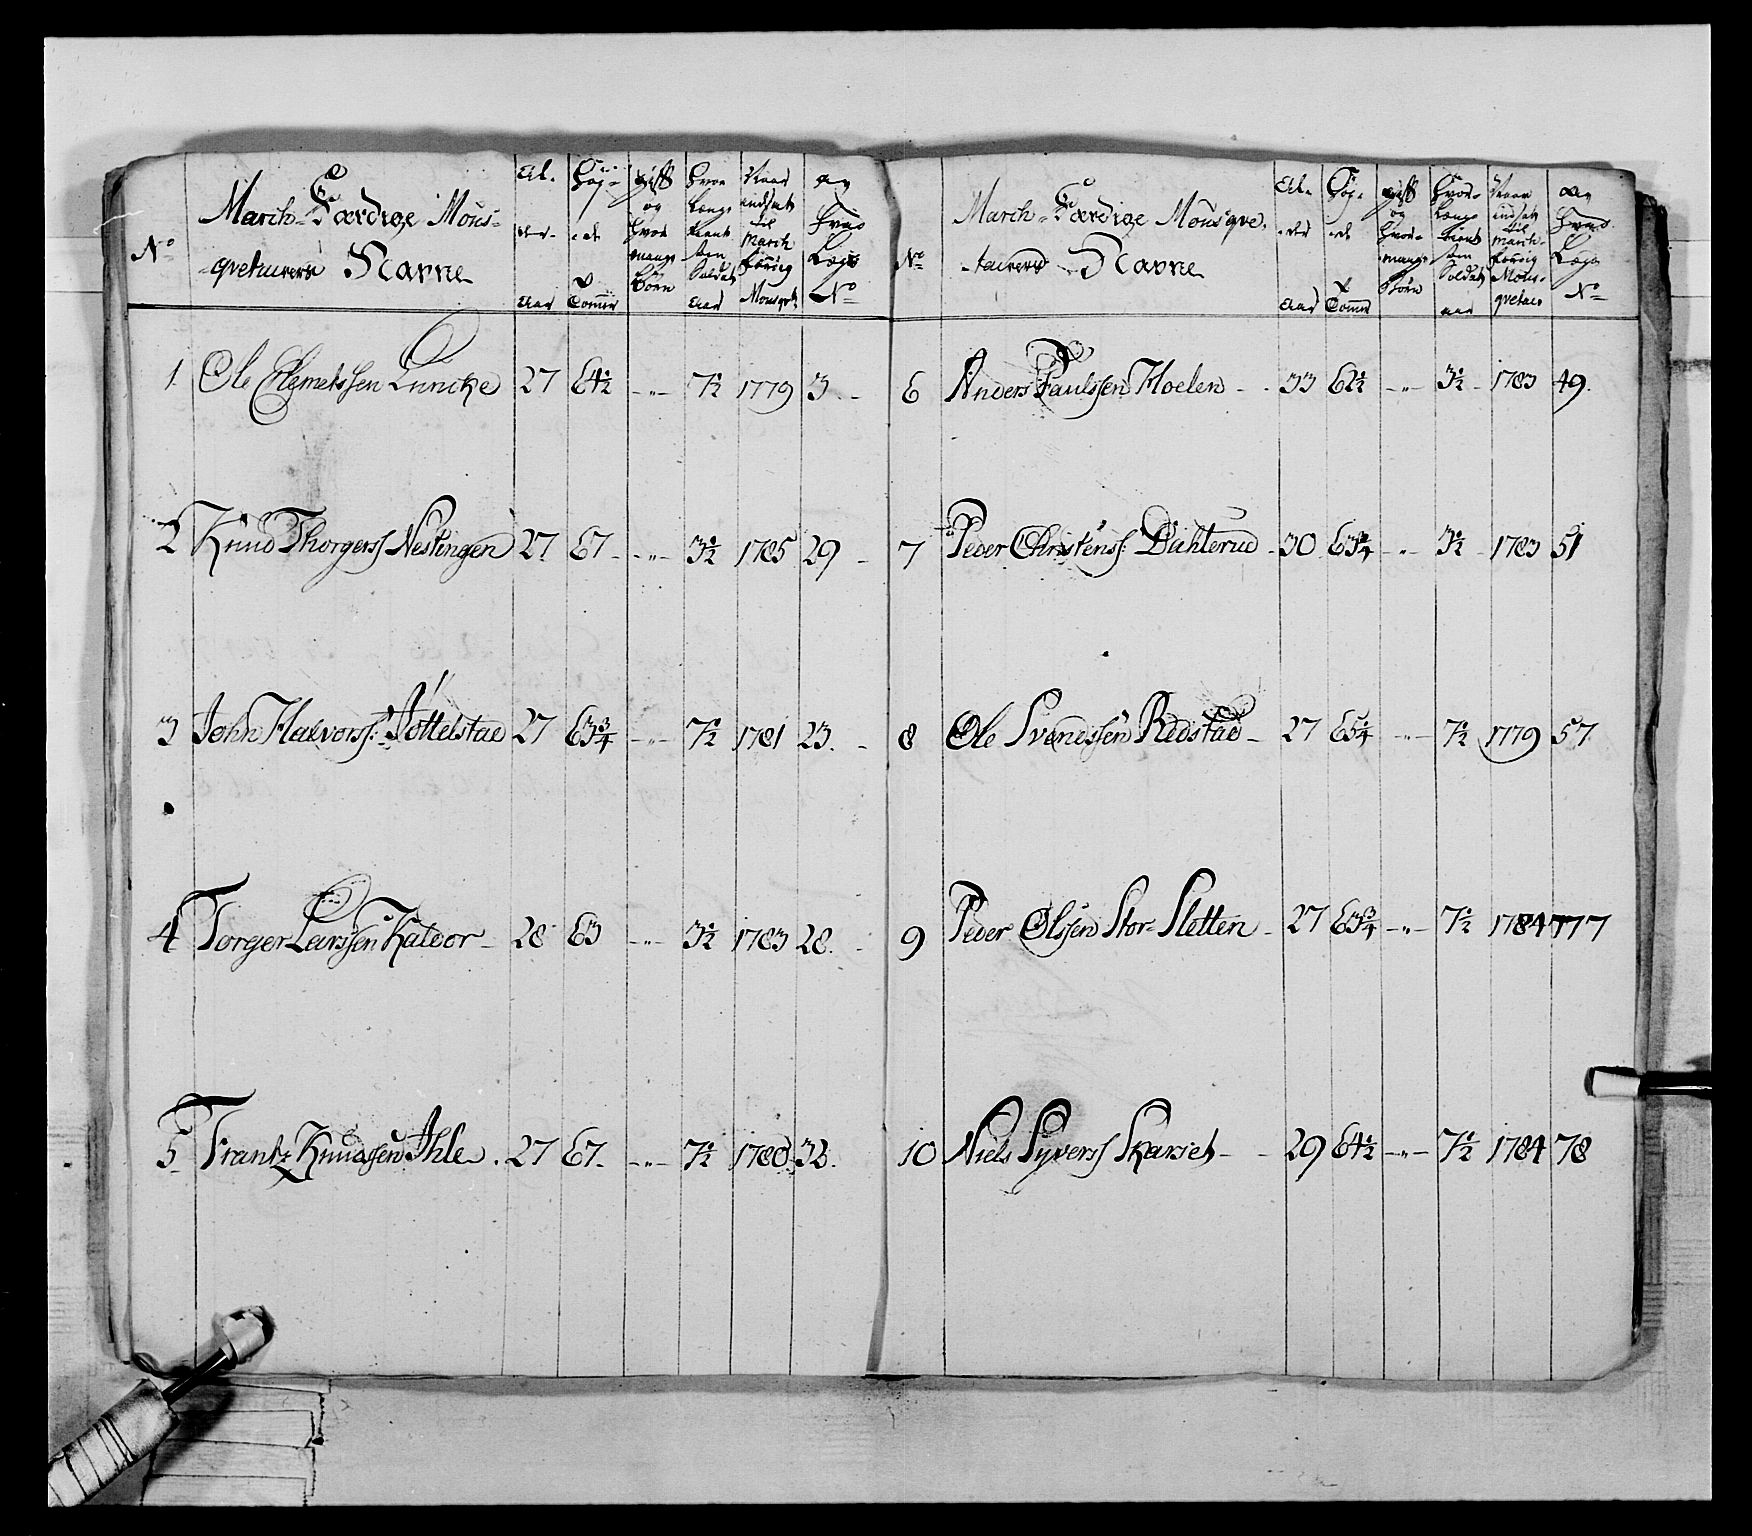 No
March-Færdige Mous-
qvetaerers Navne
Al-
der-
Aar
Høy-
de
Tommr
gift
og
hvor
mange
børn
hvor
længe
tient
som
Soldat
Aar
Naar
indsat
til
March
færdig
Mousqvt
av
hvad
Lægs
No
1. Ole Clemetssen Luncke 27 64½ -"- 7½ 1779 3. -
2 Knud Thorgerss Neslingen 27 67- -"- 3½ 1785 29 -
3 John Halvorss: Jøttelstad 27 63¾ -"- 7½ 1781 23. -
4 Torger Larssen Kaldor- 28 63 -"- 3½ 1783 28. -
5 Frantz Knudssen Ihle. 27 67- -"- 7½ 1780 32.
No
March-Færdige Mousqve.
-taerers Navne
Al-
-der
Aar
Høy-
-de
Tommr
gift
og
hvor-
mange
børn
hvor-
længe
tient
som
Soldat
aar
Naar
indsat
til
March-
færdig
Mous-
qvetaer
av
hvad
Lægs
No
6 Anders Paulssen Moelen - 33 62½ -"- 3½ - 1783 49.
7 Peder Christenss: Dahlerud - 30 63¾ -"- 3½ - 1783 51
8 Ole Svendssen Rudstad - 27 65¼ -"- 7½ 1779 57
9 Peder Olssen Stor-Sletten - 27 63¾ -"- 7½ 1784 77
10 Niels Syverss Skarset - 29 64½ -"- 7½ 1784 78